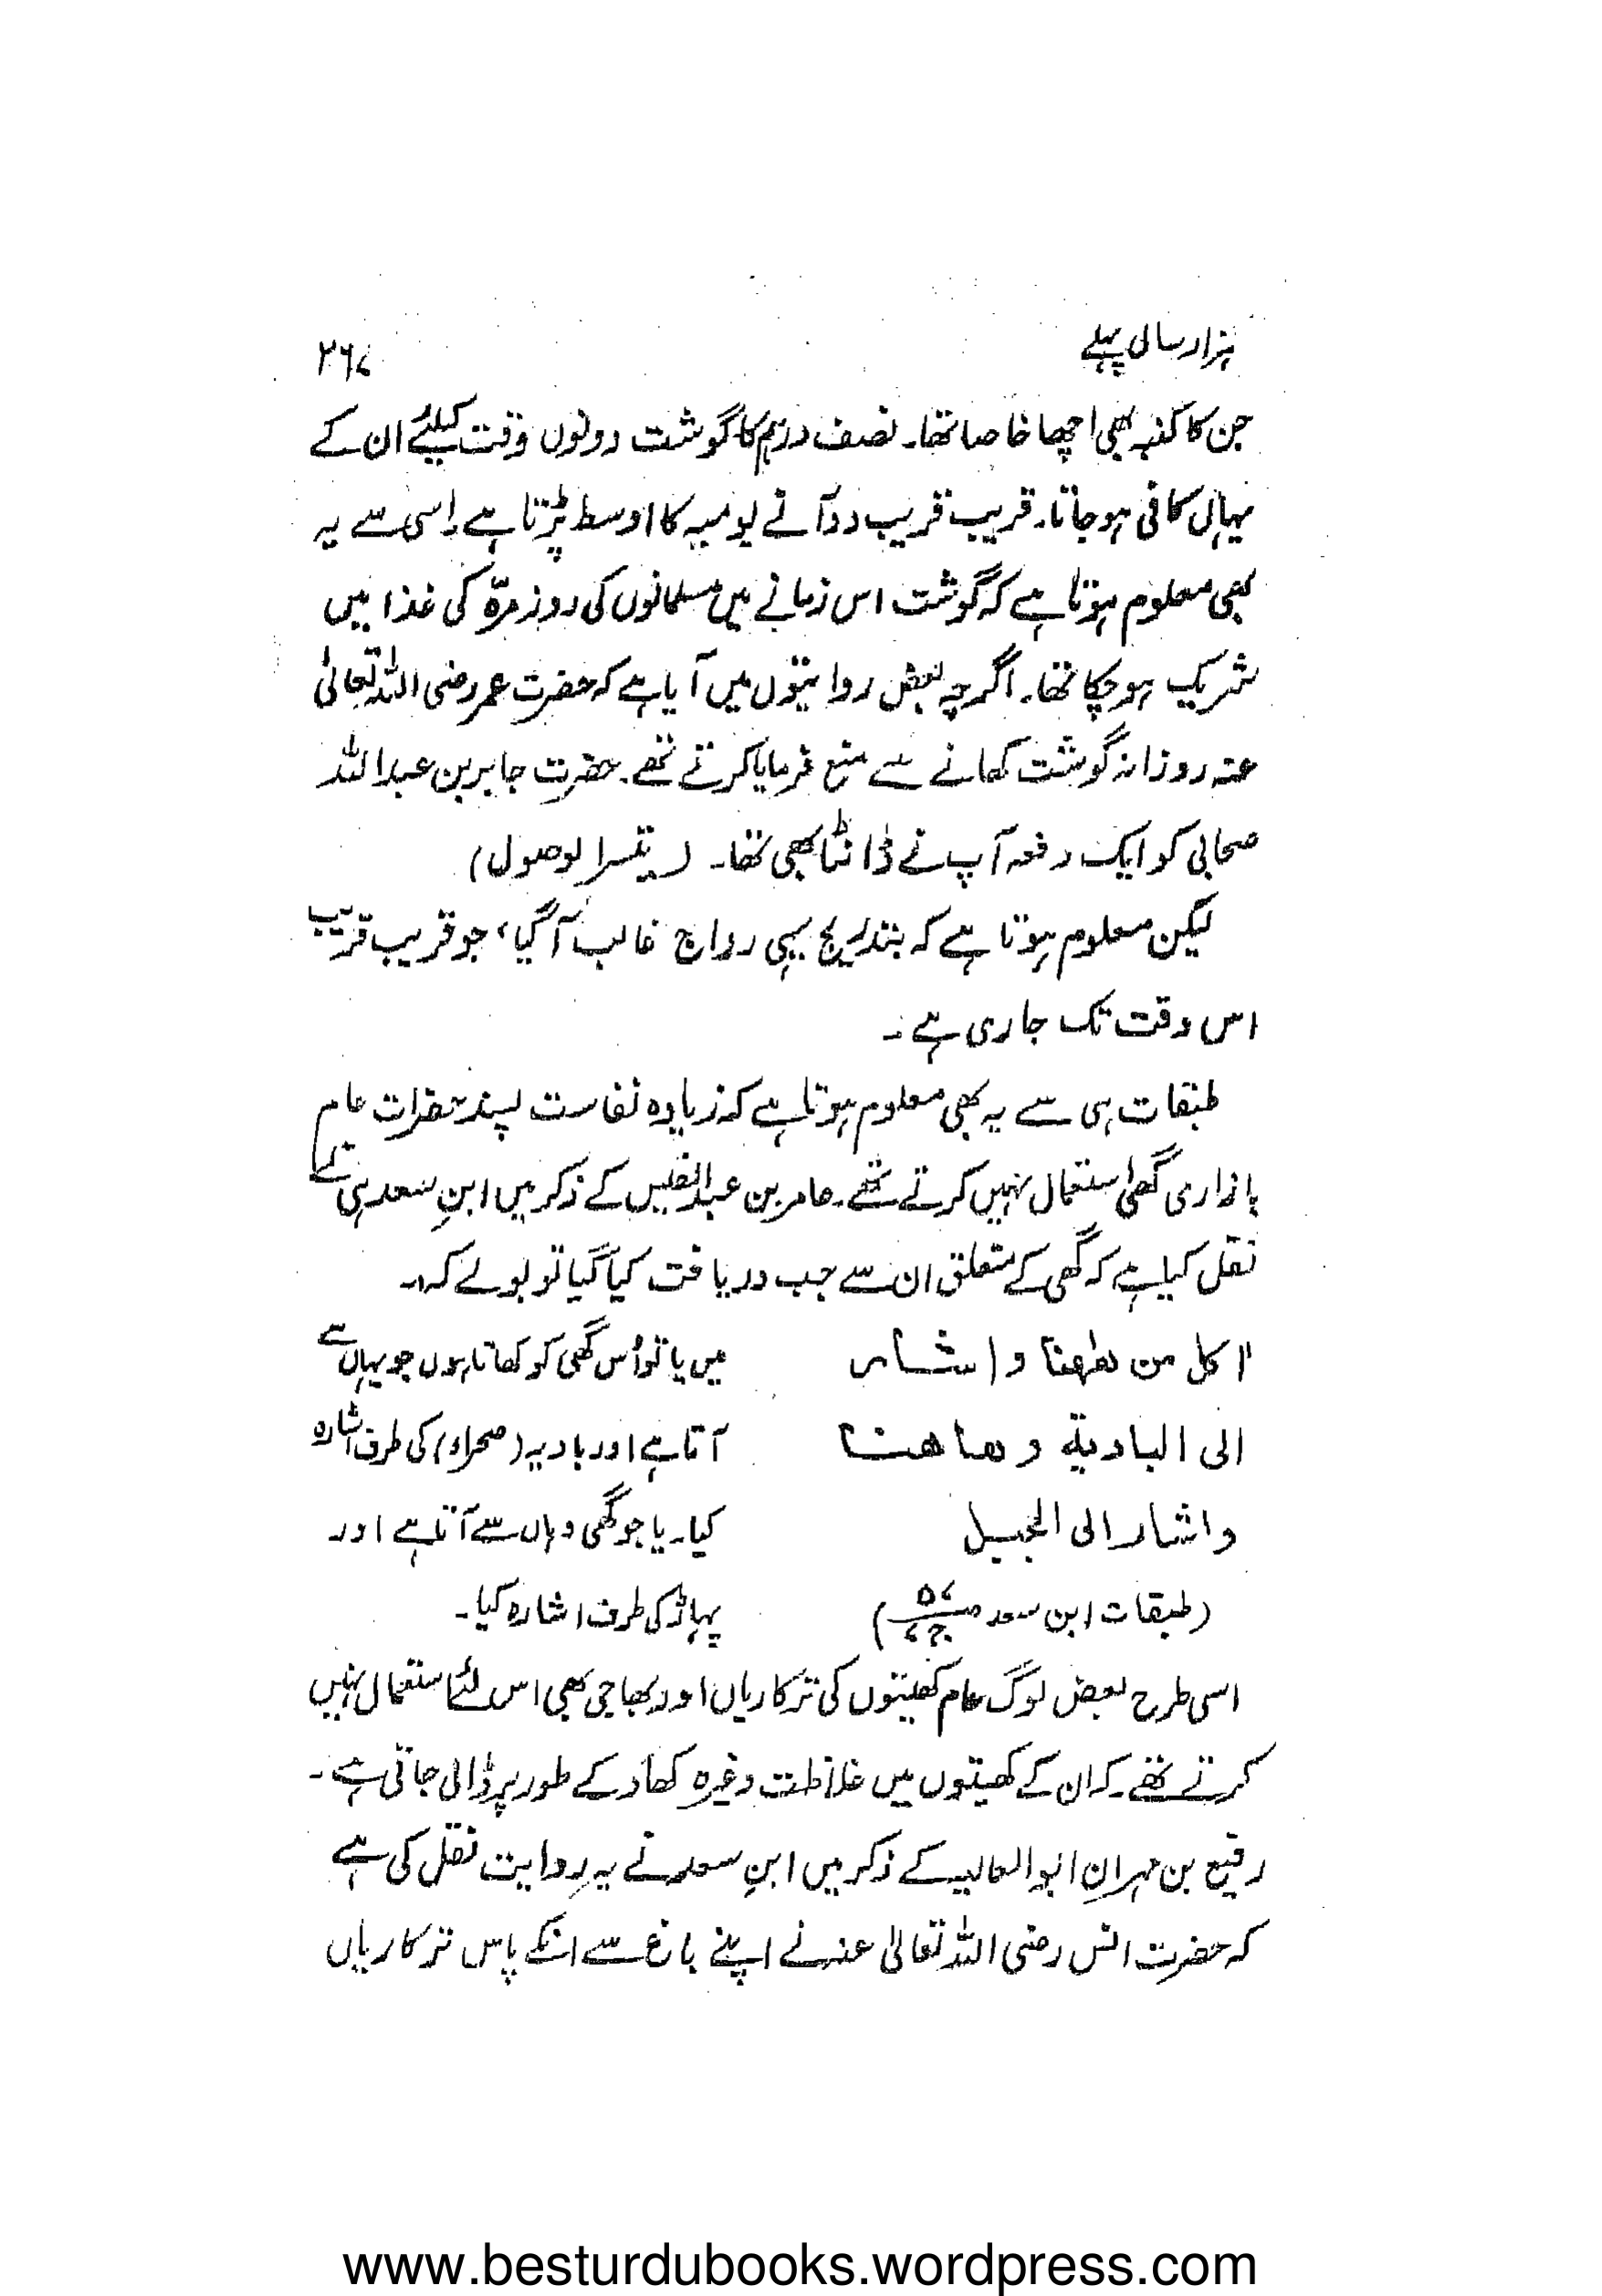 ہزار سال پہلے
۲۶۷
جن کا کنبہ بھی اچھا خاصا تھا۔ نصف درہم کا گوشت دونوں وقت کیلئے ان کے
یہاں کافی ہو جاتا۔ قریب قریب دو آنے یومیہ کا اوسط پڑتا ہے۔ اسی سے یہ
بھی معلوم ہوتا ہے کہ گوشت اس زمانے میں مسلمانوں کی روز مرّہ کی غذا میں
شریک ہو چکا تھا۔ اگرچہ بعض روایتوں میں آیا ہے کہ حضرت عمر رضی اللہ تعالیٰ
عنہ روزانہ گوشت کھانے سے منع فرمایا کرتے تھے۔ حضرت جابر بن عبداللہ
صحابی کو ایک دفعہ آپ نے ڈانٹا بھی تھا۔ (تیسرالوصول)
لیکن معلوم ہوتا ہے کہ بتدریج یہی رواج غالب آگیا، جو قریب قریب
اس وقت تک جاری ہے۔
طبقات ہی سے یہ بھی معلوم ہوتا ہے کہ زیادہ نفاست پسند حضرات عام
بازاری گھی استعمال نہیں کرتے تھے۔ عامر بن عبدالقیس کے ذکر میں ابنِ سعد ہی نے
نقل کیا ہے کہ گھی کے متعلق ان سے جب دریافت کیا گیا تو بولے کہ:۔
اٰکل من ھٰھنا واشار
الی البادیة وھاھنا
واشار الی الجبیل
(طبقات ابن سعد ص ۵۷ ج ۷)
میں یا تو اُس گھی کو کھاتا ہوں جو یہاں سے
آتا ہے اور بادیہ (صحراء) کی طرف اشارہ
کیا۔ یا جو گھی وہاں سے آتا ہے اور
پہاڑ کی طرف اشارہ کیا۔
اسی طرح بعض لوگ عام کھیتوں کی ترکاریاں اور بھاجی بھی اس لئے استعمال نہیں
کرتے تھے۔ کہ ان کے کھیتوں میں غلاظت وغیرہ کھاد کے طور پر ڈالی جاتی ہے۔
رفیع بن مہران ابوالعالیہ کے ذکر میں ابنِ سعد نے یہ روایت نقل کی ہے
کہ حضرت انس رضی اللہ تعالیٰ عنہ نے اپنے باغ سے انکے پاس ترکاریاں
www.besturdubooks.wordpress.com